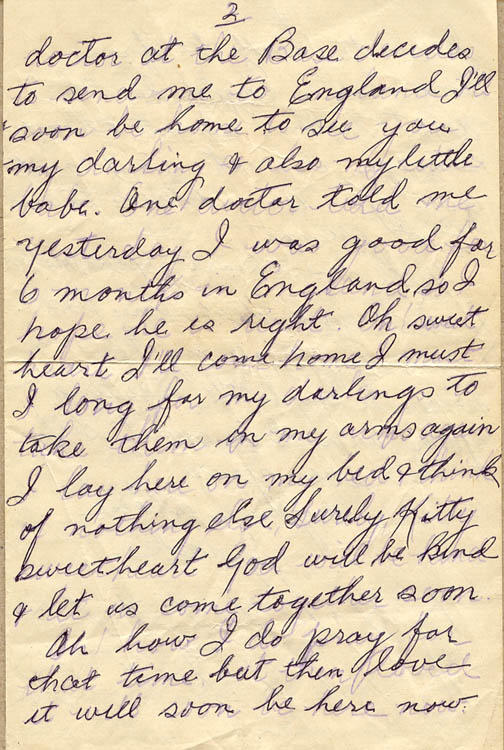 2
doctor at the Base decides
to send me to England I'll
soon be home to see you
my darling & also my little
babe. One doctor told me
yesterday I was good for
6 months in England so I
hope he is right. Oh sweet
heart I'll come home I must
I long for my darlings to
take them in my arms again
I lay here on my bed & think
of nothing else Surely Kitty
sweetheart God will be kind
& let us come together soon.
Oh how I do pray for
that time but then love
it will soon be here now.